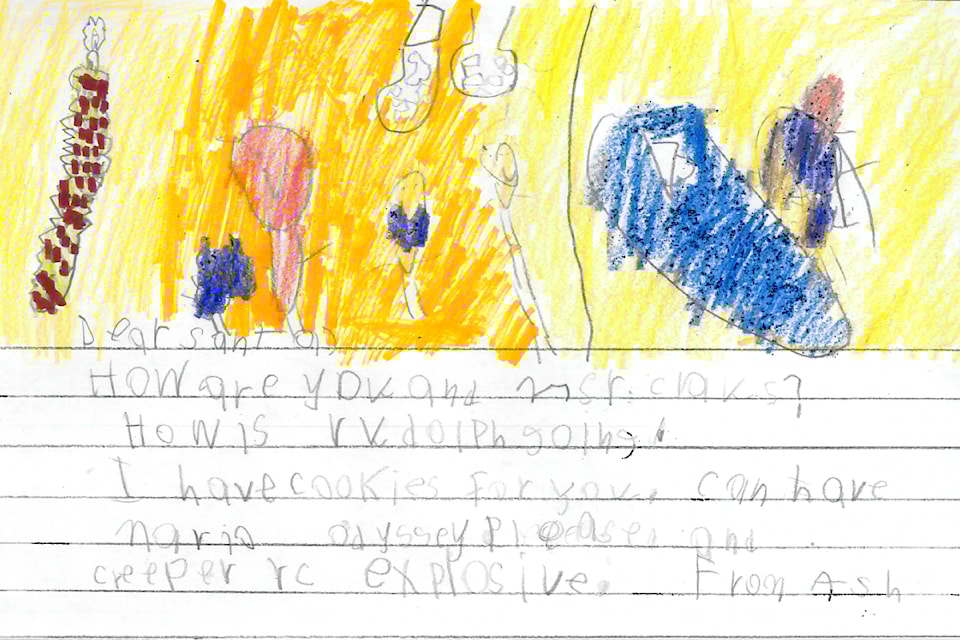 Dear santa
How are you and mrs. claus?
How is rudolph going.
I have cookies for you. can have
mario odyssey please and
creeper rc explosive. From Ash